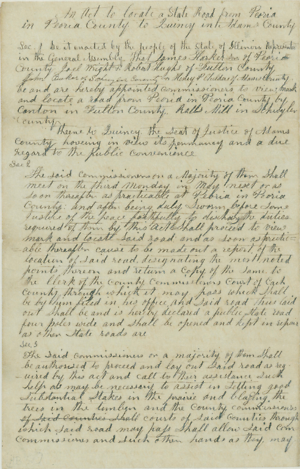 An Act to locate a State Road from Peoria
in Peoria County to Quincy in Adams County
Sec 1 Be it enacted by the people of the State of Illinois represented
in the General Assembly That James Harker of Peoria
County Joel Wright Robt of Fulton County
Henry of Adams County
be and are hereby appointed commissioners to view mark
and locate a road from Peoria in Peoria County by
Canton in Fulton County Mill in Schuyler
County
Thence to Quincy the Seat of Justice of Adams
County having in view its permanency and a due
regard to the public convenience
Sec 2
The said commissioners or a majority of them Shall
meet on the third Monday in May next or as
soon thereafter as practicable at Peoria in Peoria
County and after being duly sworn before some
Justice of the peace faithfully to discharge the duties
required of them by this Act Shall proceed to view
mark and locate said road and as soon as practic-
able thereafter cause to be made out a report of the
location of said road designating the most noted
points thereon and return a Copy of the same to
the Clerk of the County Commissioners Court of each
County through which it may pass which Shall
be by them filed in his office and said road thus laid
out Shall be and is hereby declared a public State road
four poles wide and Shall be opened and kept in repair
as other State roads are
Sec 3
The Said Commissioners or a majority of them Shall
be authorised to proceed and lay out Said road as re-
quired by this act and call to their assistance Such
help as may be necessary to assist in setting good
Substantial Stakes in the prairie and blazing the
trees in the timber and the County commissioners
of Said Counties Shall courts of Said Counties through
which said road may pass Shall allow Said Com-
missioners and Such other hands as they may